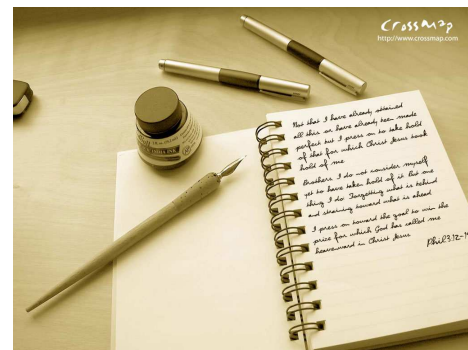 CrossMap
http://www.crossmap.com
Not that I have already attained
all this or have already been made
perfect but I press on to take hold
of that for which Christ Jesus took
hold of me
Brothers I do not consider myself
yet to have taken hold of it But one
thing I do Forgetting what is behind
and straining toward what is ahead
I press on toward the goal to win the
prize for which God has called me
heavenward in Christ Jesus